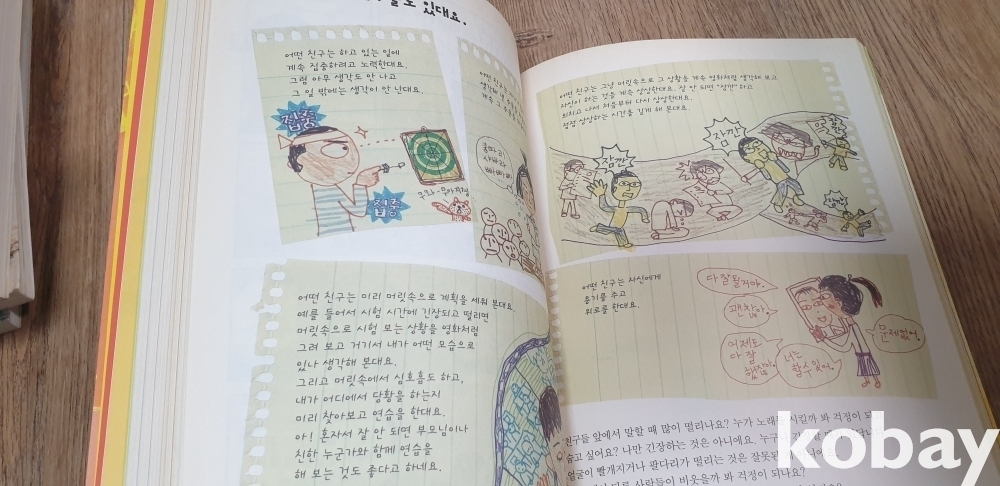 있대요.
어떤 친구는 하고 있는 일에
계속 집중하려고 노력한대요.
그럼 아무 생각도 안 나고
그 일 밖에는 생각이 안 난대요.
집중
집중
어떤 친구는 미리 머릿속으로 계획을 세워 본대요.
예를 들어서 시험 시간에 긴장되고 떨리면
머릿속으로 시험 보는 상황을 영화처럼
그려 보고 거기서 내가 어떤 모습으로
있나 생각해 본대요.
그리고 머릿속에서 심호흡도 하고,
내가 어디에서 당황을 하는지
미리 찾아보고 연습을 한대요.
아! 혼자서 잘 안 되면 부모님이나
친한 누군가와 함께 연습을
해 보는 것도 좋다고 하네요.
어떤
생각해
계속 그
어떤 친구는 그냥 머릿속으로 그 상황을 계속 영화처럼 생각해 보고
자신이 하는 것을 계속 상상한대요. 잘 안 되면 "잠깐" 하고
외치고 나서 처음부터 다시 상상한대요.
점점 상상하는 시간을 길게 해 본대요.
잠깐
잠깐
잠깐
잠깐
어떤 친구는 자신에게
용기를 주고
위로를 한대요.
다 잘될거야.
괜찮아
어제도
다 잘
했잖아.
너는
할수있어.
문제없어.
친구들 앞에서 말할 때 많이 떨리나요? 누가 노래를 시킬까 봐 걱정이
숨고 싶어요? 나만 긴장하는 것은 아니에요. 누구
얼굴이 빨개지거나 팔다리가 떨리는 것은 잘못된
사람들이 비웃을까 봐 걱정이 되나요?
kobay